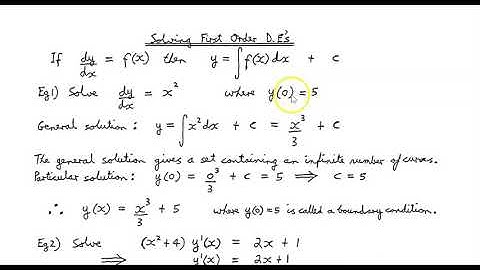 Solving First Order D.E's
If dy/dx = f(x) then y = ∫f(x)dx + c
Eg1) Solve dy/dx = x² where y(0) = 5
General solution: y = ∫x²dx + c = x³/3 + c
The general solution gives a set containing an infinite number of curves.
Particular solution: y(0) = 0³/3 + c = 5 ⟹ c = 5
∴ y(x) = x³/3 + 5 where y(0)=5 is called a boundary condition.
Eg2) Solve (x²+4) y'(x) = 2x + 1
⟹ y'(x) = 2x+1